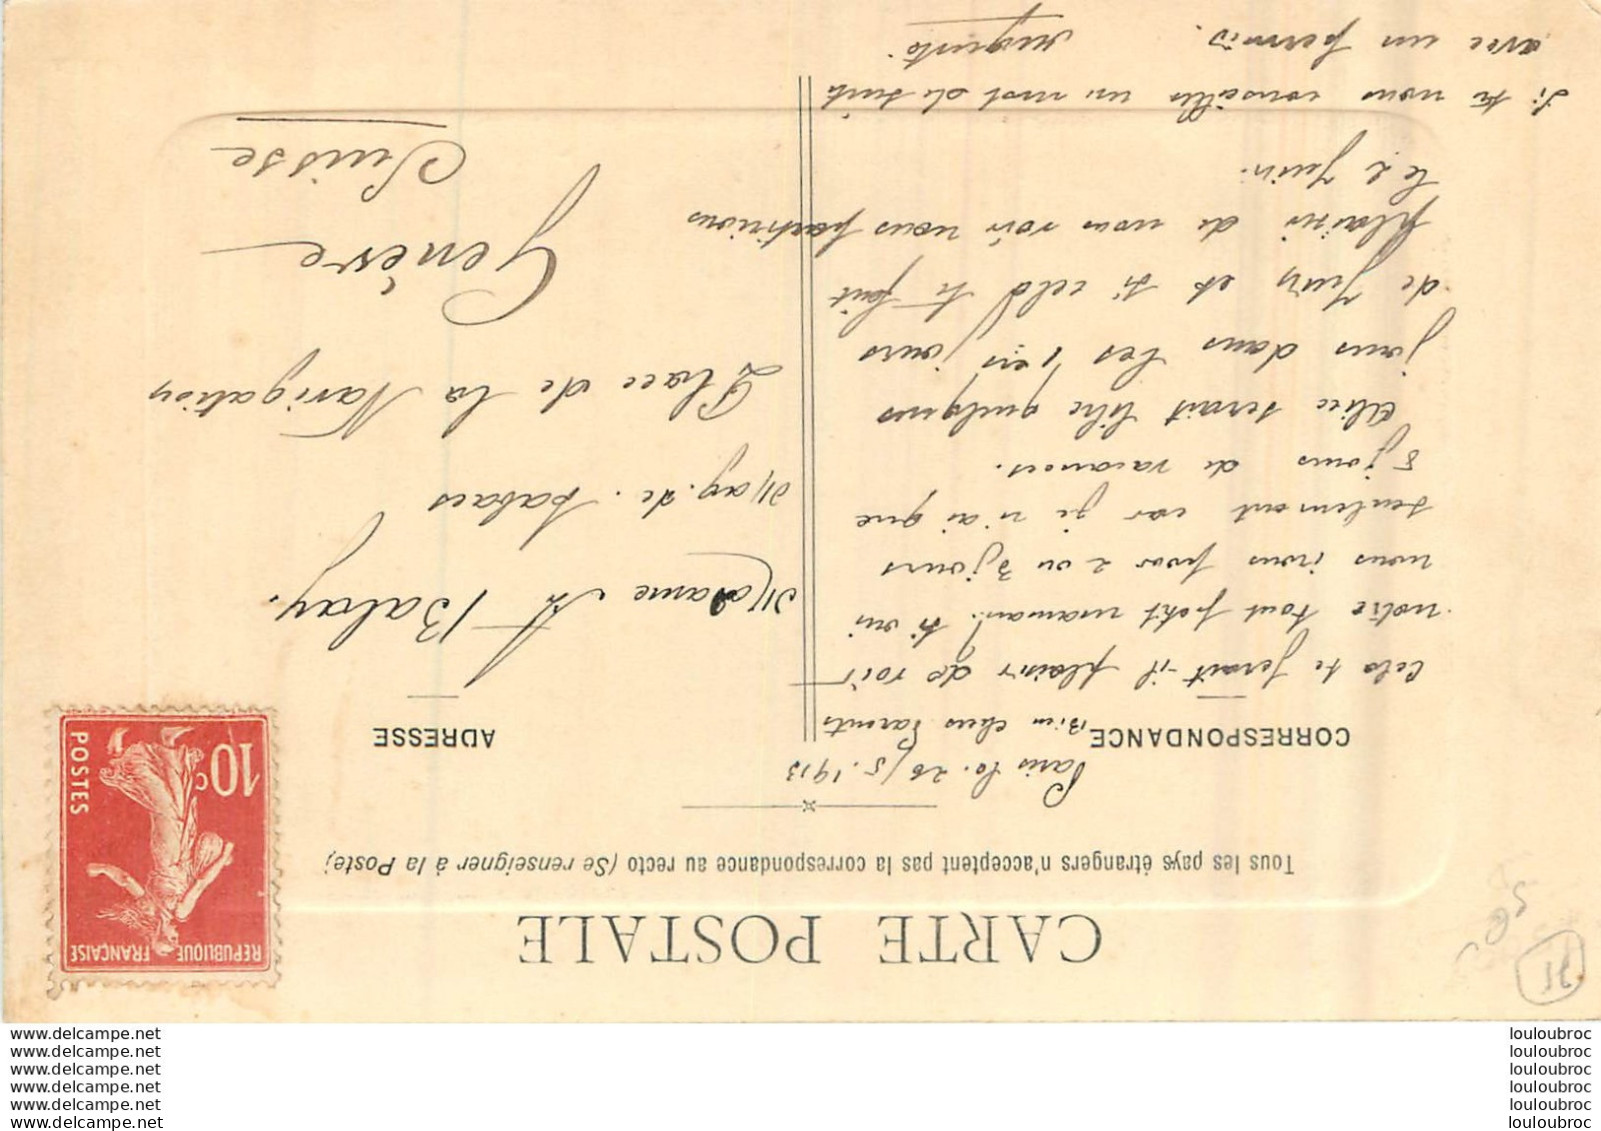 CARTE POSTALE
Tous les pays étrangers n'acceptent pas la correspondance au recto (Se renseigner à la Poste)
CORRESPONDANCE
Paris le 26/5.1913
Bien chers Parents
Cela te ferait-il plaisir de voir
notre tout petit maman? si oui
nous irons pour 2 ou 3 jours
seulement car je n'ai que
8 jours de vacances.
Alice serait libre quelques
jours dans les 1ers jours
de Juin et si cela te fait
plaisir de nous voir nous partirions
le 2 Juin.
Si tu nous conseilles un mot de suite
avec un permis.
Auguste
ADRESSE
Madame A Balay.
Mag. de. tabacs
Place de la Navigation
Genève
Suisse
REPUBLIQUE FRANÇAISE
10c
POSTES
www.delcampe.net
www.delcampe.net
www.delcampe.net
www.delcampe.net
www.delcampe.net
www.delcampe.net
louloubroc
louloubroc
louloubroc
louloubroc
louloubroc
louloubroc